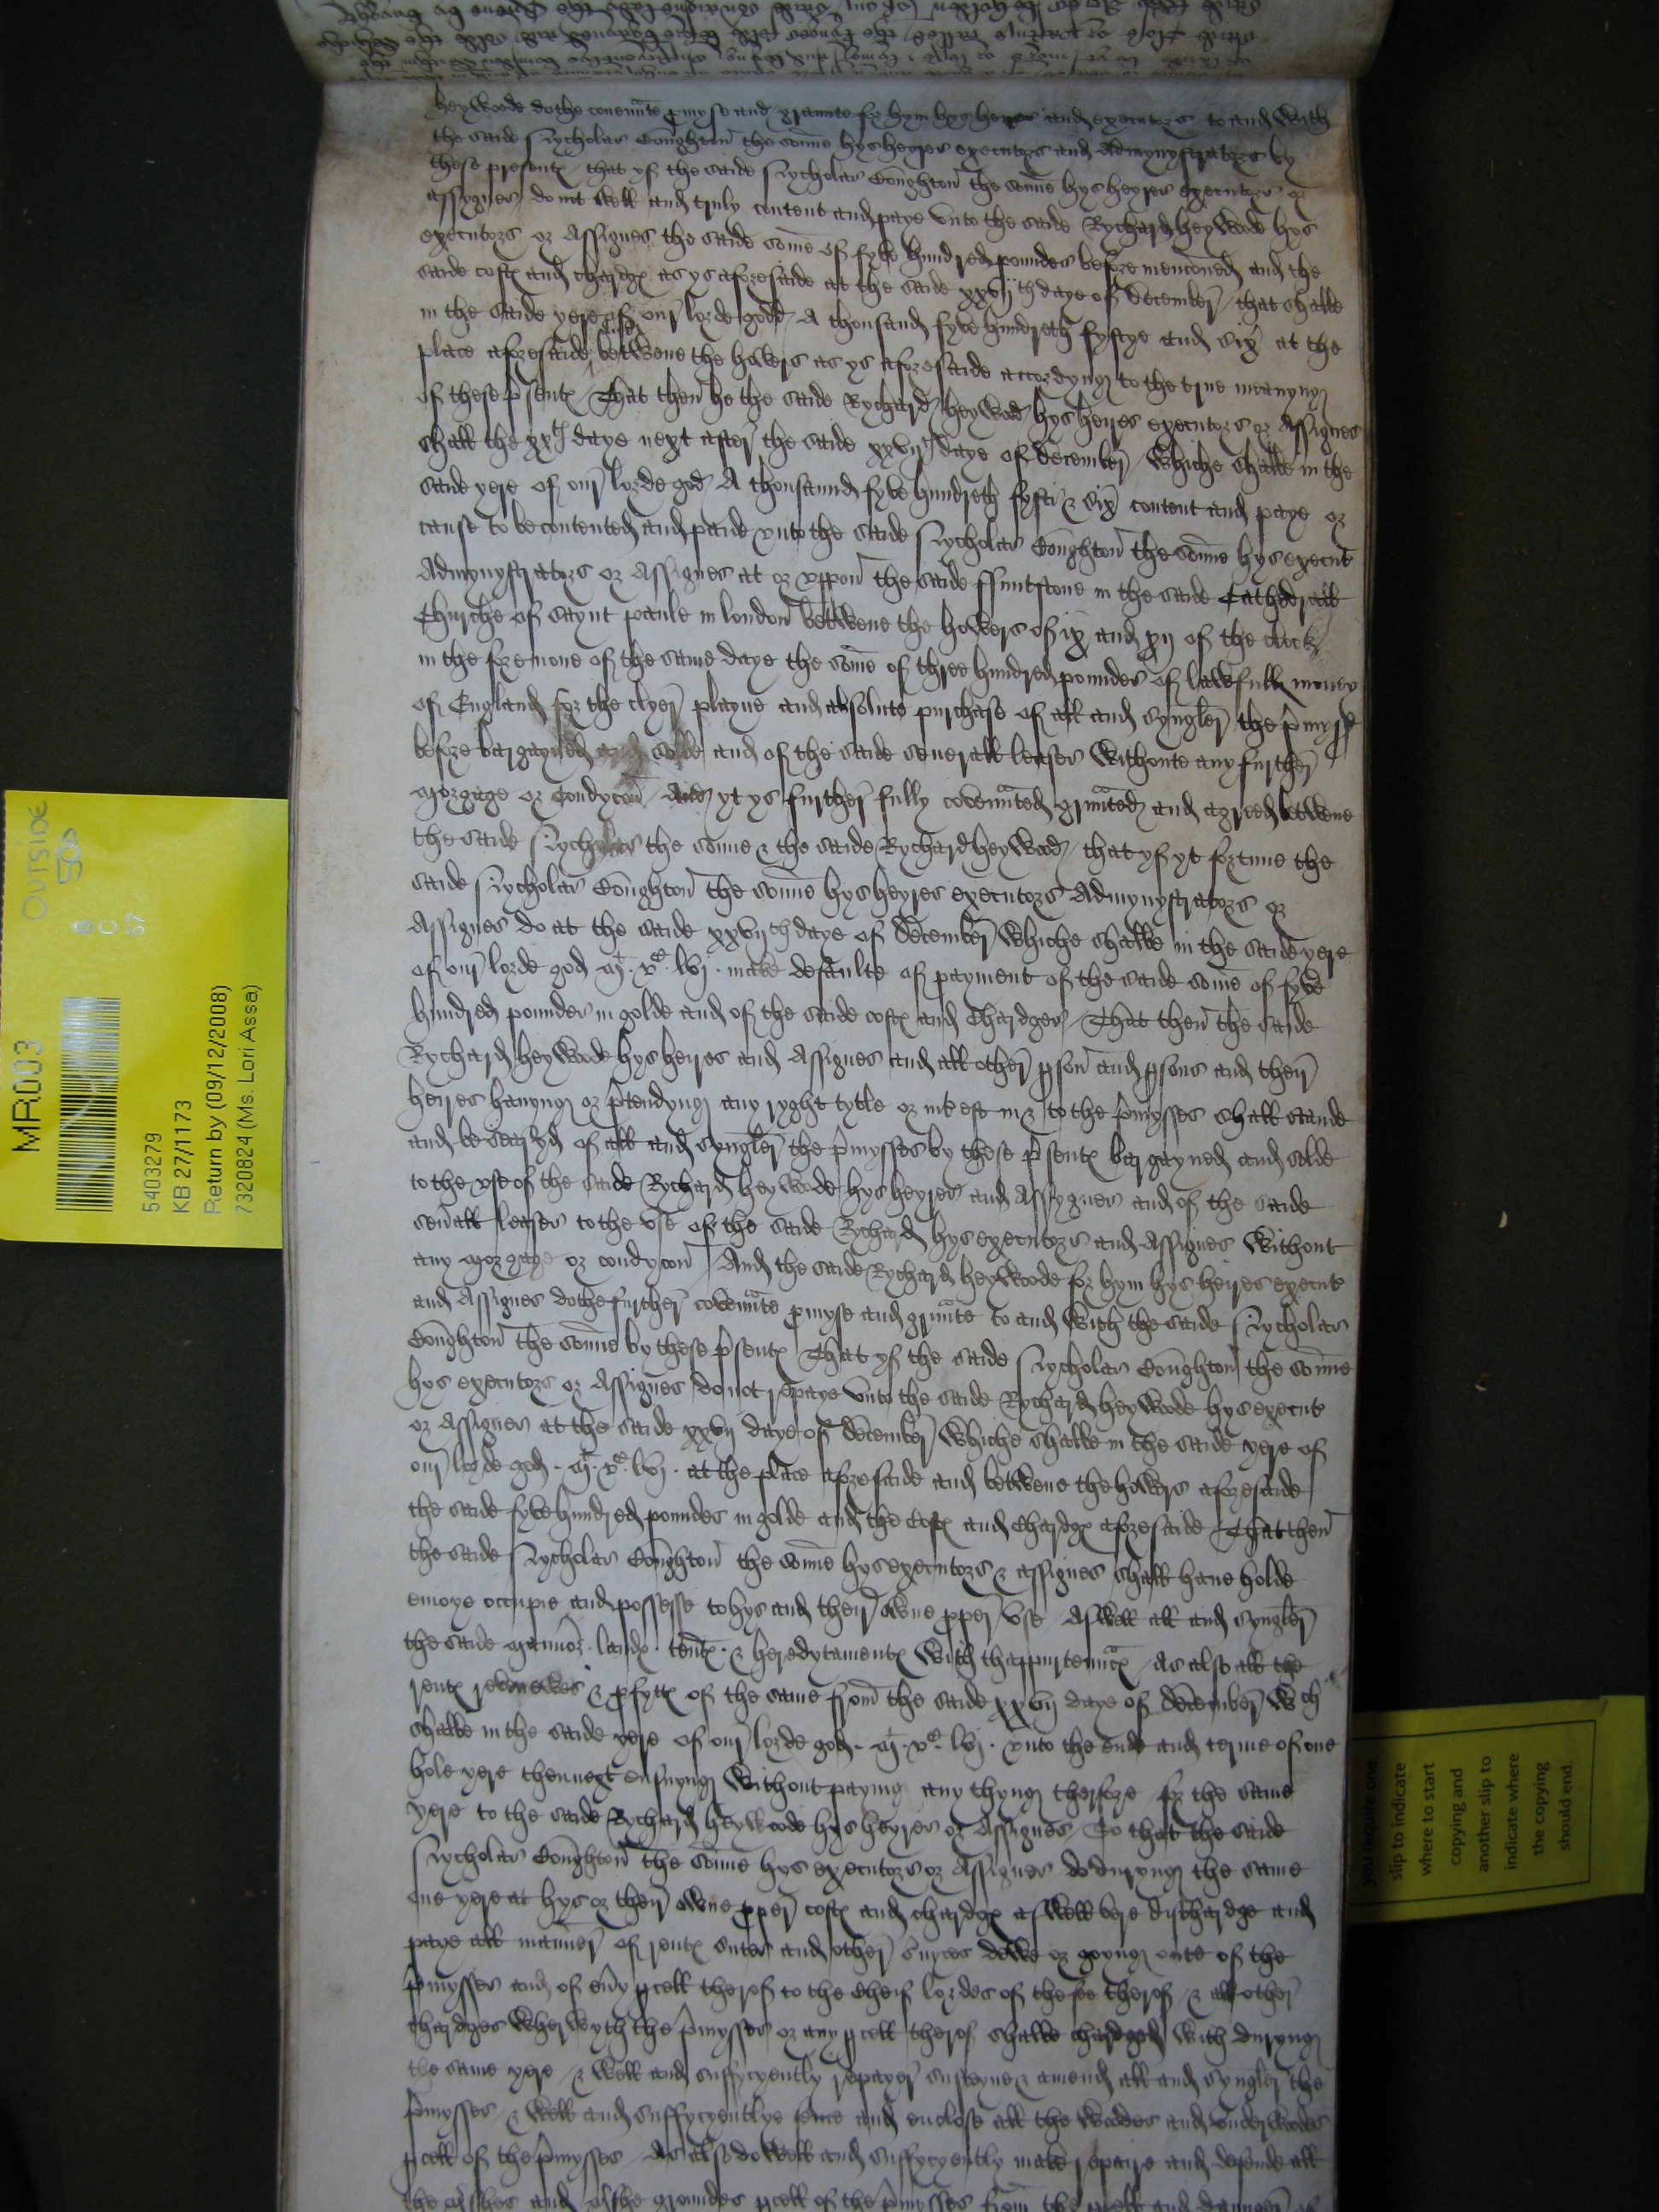 heywoode dothe covennte pmyse and graunte for hym hys heires and executors to and with
the saide Nycholas Coughton the sonne hys heyres executors and Admynystrators by
these presentes / that yf the saide Nycholas Coughton the sonne hys heyres executors or
assygnes do not well and truly content and paye vnto the saide Rychard heywode hys
executors or Assignes the saide some of fyve hundred pounds before menconed and the
saide costes and chardges as ys aforesaide at the saide xxvijth daye of december / that shalbe
in the saide yere of our lorde godd A thousand fyve hundreth fyftye and six at the
place aforesaide and betwene the howers as ys aforesaide accordyng to the true meanyng
of these psentes / That then he the saide Rychard heywod hys heires executors or Assignes
shall the xxth daye next after the saide xxvijth daye of december / whiche shalbe in the
saide yere of our lorde god A thousaund fyve hundreth fyfti & six content and paye or
cause to be contented and paide vnto the saide Nycholas Coughton the sonne hys execut
Admynystrators or Assignes at or vppon the saide ffuntstone in the saide Cathedrall
Churche of saynt paule in london betwene the howers of ix and xij of the clock
in the forenone of the same daye the some of three hundred pounds of lawfull money
of England for the clyer playne and absolute purchase of all and syngler the pmyss
before bargayned and solde and of the saide severall leases withoute any further
Morgage or Condycon / And yt ys further fully covennted grunted and agreed betwene
the saide Nycholas the sonne & the saide Rychard heywood / that yf yt fortune the
saide Nycholas Coughton the sonne hys heyres executors Admynystrators or
Assignes do at the saide xxvijth daye of december whiche shalbe in the saide yere
of our lorde god Ml vc lvj make defaulte of payment of the saide some of fyve
hundred pounds in golde and of the saide costes and Chardges / That then the saide
Rychard heywoode hys heires and Assignes and all other pson and psons and their
heires havyng or ptendyng any ryght tytle or intrest in & to the pmysses shall stande
and be seased of all and syngler the pmysses by these psentes bargayned and solde
to the vse of the saide Rychard heywoode hys heyres and Assygnes and of the saide
seuall leases to the vse of the saide Rychard hys executors and Assignes without
any morgage or condycon / And the saide Rychard heywoode for hym hys heires execut
and Assignes dothe further covennte pmyse and grunte to and with the saide Nycholas
Coughton the sonne by these psentes / That yf the saide Nycholas Coughton the sonne
hys executors or Assignes do not repaye vnto the saide Rychard heywoode hys execut
or Assignes at the saide xxvij daye of december whiche shalbe in the saide yere of
our lorde god Ml vc lvj at the place aforesaide and betwene the howers aforesaide
the saide fyve hundred pounds in golde and the costes and chardges aforesaide / That then
the saide Nycholas Coughton the sonne hys executors & assignes shall have holde
enioye occupie and possesse to hys and their owne pper vse Aswell all and syngler
the saide mannor landes tentes & heredytamentes with thappurtennces / As also all the
rentes revenewes & pfyttes of the same from the saide xxvij daye of december wch
shalbe in the saide yere of our lorde god Ml vc lvj vnto the ende and terme of one
hole yere then next ensuyng without paying any thyng therfore for the same
yere to the saide Rychard heywoode hys heyres or Assignes / So that the saide
Nycholas Coughton the sonne hys executors or Assignes do duryng the same
one yere at hys or their owne pper costes and chardges aswell bere dischardge and
paye all manner of rentes sutes and other suyces dewe or goyng oute of the
pmysses and of euy pcell therof to the cheif lordes of the fee therof & all other
chardges wherwyth the pmysses or any pcell therof shalbe chardged with duryng
the same yere / & well and suffycyently repayer susteyne & amend all and syngler the
pmysses / & well and suffycyentlye fence and enclose all the woodes and vnderwoodes
pcell of the pmysses / As also do well and suffycyently make repaire and defende all
MR003
OUTSIDE
5403279
KB 27/1173
Return by (09/12/2008)
7320824 (Ms. Lori Assa)
you require one
slip to indicate
where to start
copying and
another slip to
indicate where
the copying
should end.